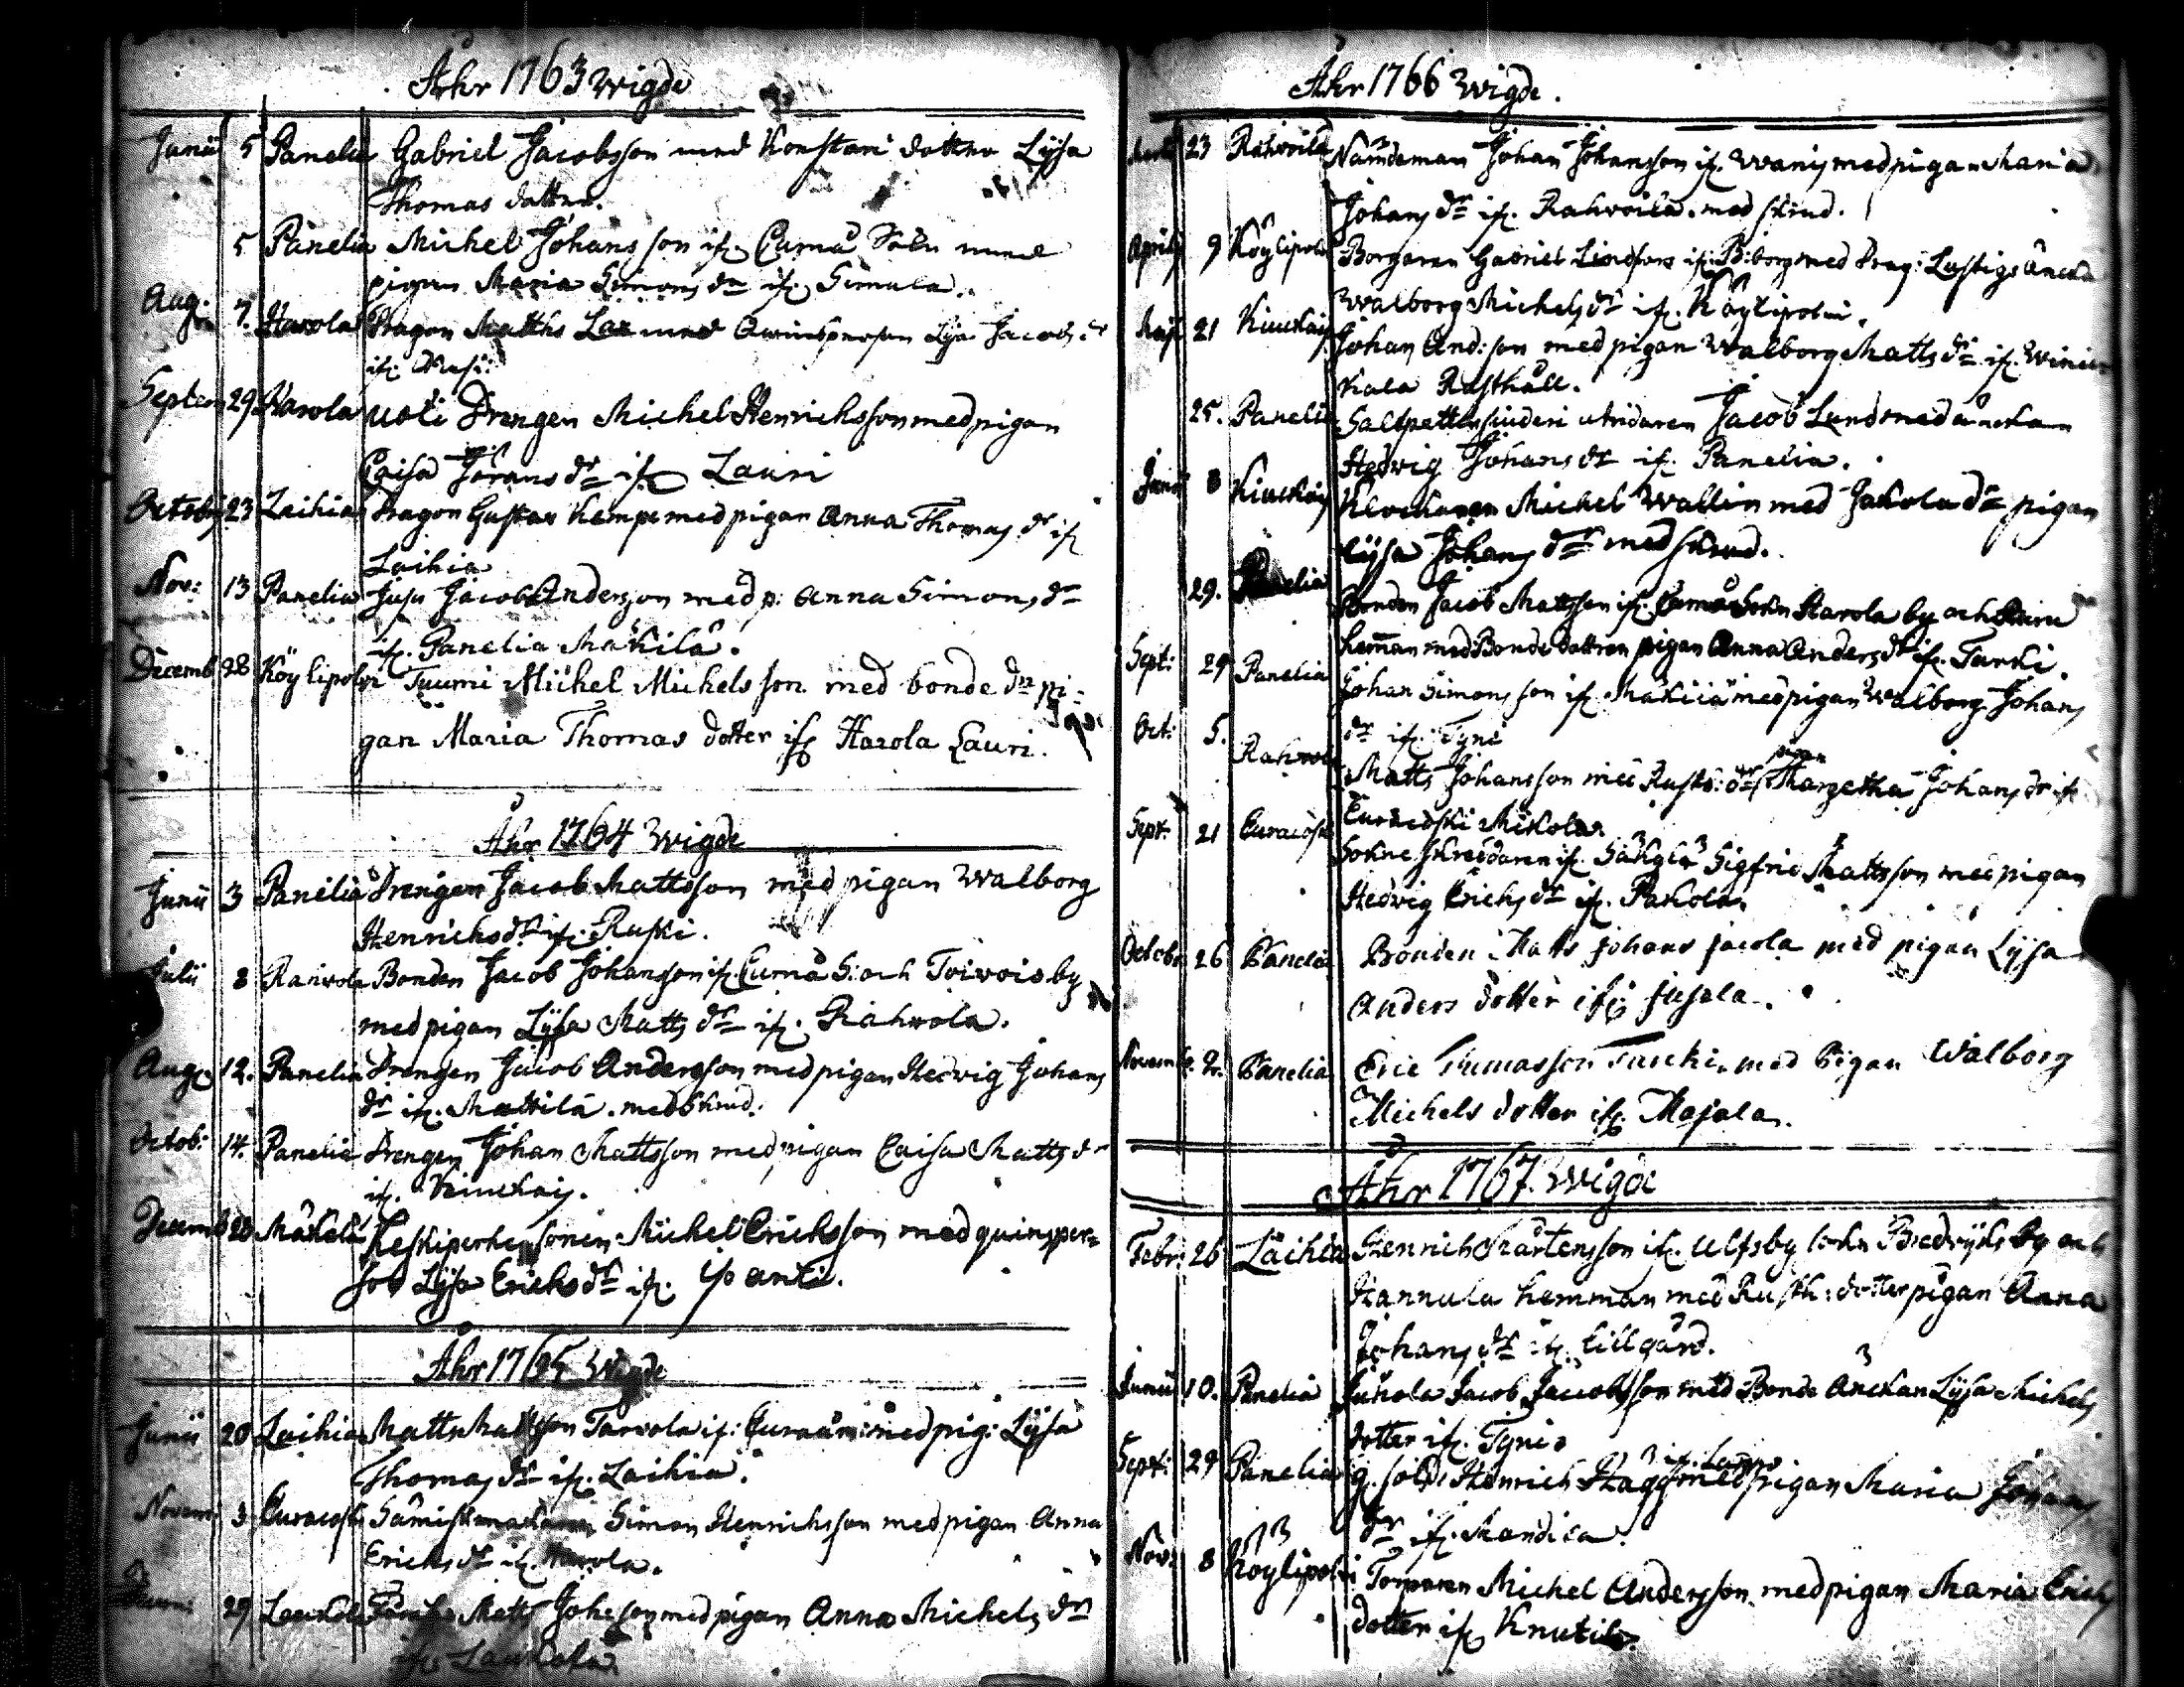 Åhr 1763 wigde
Junii 5 Panelia Gabriel Jacobsson med Konstari dottren Lysa
Thomas dottren.
5 Panelia Michel Johansson if. Eurnå Sokn med
pigan Maria Simons dr if. Simula.
Aug. 7. Harola Dragon Matths Lax med Qwinspersonen Lysa Jacobs dr
if.
Septem 29 Harola Uoti Drengen Michel Henrichsson med pigan
Caisa Jörans dr if. Lauri
Octob. 23 Laihia Dragon Gustav Kempe med pigan Anna Thomas dr if.
Laihia
Nov: 13 Panelia Jusu Jacob Andersson med p: Anna Simons dr
if. Panelia Mäkilä.
Decemb 28 Köylipolvi Tuumi Michel Michelsson med bonde dr pi-
gan Maria Thomas dotter if. Harola Lauri.
Åhr 1764 wigde
Junii 3 Panelia Drengen Jacob Mattsson med pigan Walborg
Henrichs dr if. Ruski.
Julii 8 Rahvola Bonden Jacob Johansson if. Eurnå S: och Toivois by
med pigan Lysa Matts dr if. Rahvola.
Aug. 12. Panelia Drengen Jacob Andersson med pigan Hedvig Johans
dr if. Mattila. med skrud.
Octob: 14. Panelia Drengen Johan Mattsson med pigan Caisa Matts dr
if. Kiuckais.
Decemb 28 Mäkelä Sonen Michel Erichsson med quinsper-
son Lysa Erichs dr if. Ipanti.
Åhr 1765 Wigde
Junii 20 Laihia Matts Mattsson Tarvola if: med pig: Lysa
Thomas dr if. Laihia.
Novem: 3 Euracoski Sämiskmakaren Simon Henrichsson med pigan Anna
Erichs dr if. Harola.
29 Laukola Matts Joh: son med pigan Anna Michels dr
if. Laukola
Åhr 1766 Wigde.
23 Rahvola Nämdeman Johan Johansson if. Wanis med pigan Maria
Johans dr if. Rahvola. med skrud.
Aprilis 9 Köylipolvi Borgaren Gabriel Lindfors if. B:borg med Drag: Lustigs Änckia
Walborg Michels dr if. Köylipolvi.
Maji 21 Kiuckais Johan And:son med pigan Walborg Matts dr if.
Rusthåll.
25. Panelia Saltpetter siuderi Jacob Lund med änckan
Hedvig Johans dr if. Panelia.
Junii 8 Kiuckais Klockaren Michel Wallin med Jakola dr pigan
Lysa Johans dr med skrud.
29. Panelia Bonden Jacob Mattsson if. Eurnå Sokn Harola by och
hemman med Bonde dottren pigan Anna Anders dr if. Turki.
Sept: 29 Panelia Johan Simonsson if. Mäkilä med pigan Walborg Johans
dr if. Tyni
Oct: 5. Rahvola Matts Johansson med Rusth: dr pigan Margetha Johans dr if.
Euracoski Mikola
Sept. 21 Euracoski Sokne skreddaren if. Säkylä Sigfrid Mattsson med pigan
Hedvig Erichs dr if. Pakola.
Octob. 26 Panelia Bonden Matts Johans Jacola med pigan Lysa
Anders dotter if. Jusala.
Novemb. 2. Panelia Eric Tumasson Turcki med Pigan Walborg
Michels dotter if. Majala.
Åhr 1767. Wigde
Febr: 26 Laihia Henrich Mårtensson if. Ulfsby sokn Bredviks by och
Hannula hemman med Rusth: dotter pigan Anna
Johans dr if. Lillgård.
Junii 10. Panelia Juhola Jacob Jacobsson med Bonde Änckan Lysa Michels
dotter if. Tyni.
Sept: 29 Panelia g. sold: Henrich Hagg med pigan Maria Johans
dr if. Mandila.
Nov: 8 Köylipolvi Torparen Michel Andersson med pigan Maria Erichs
dotter if. Knutila.